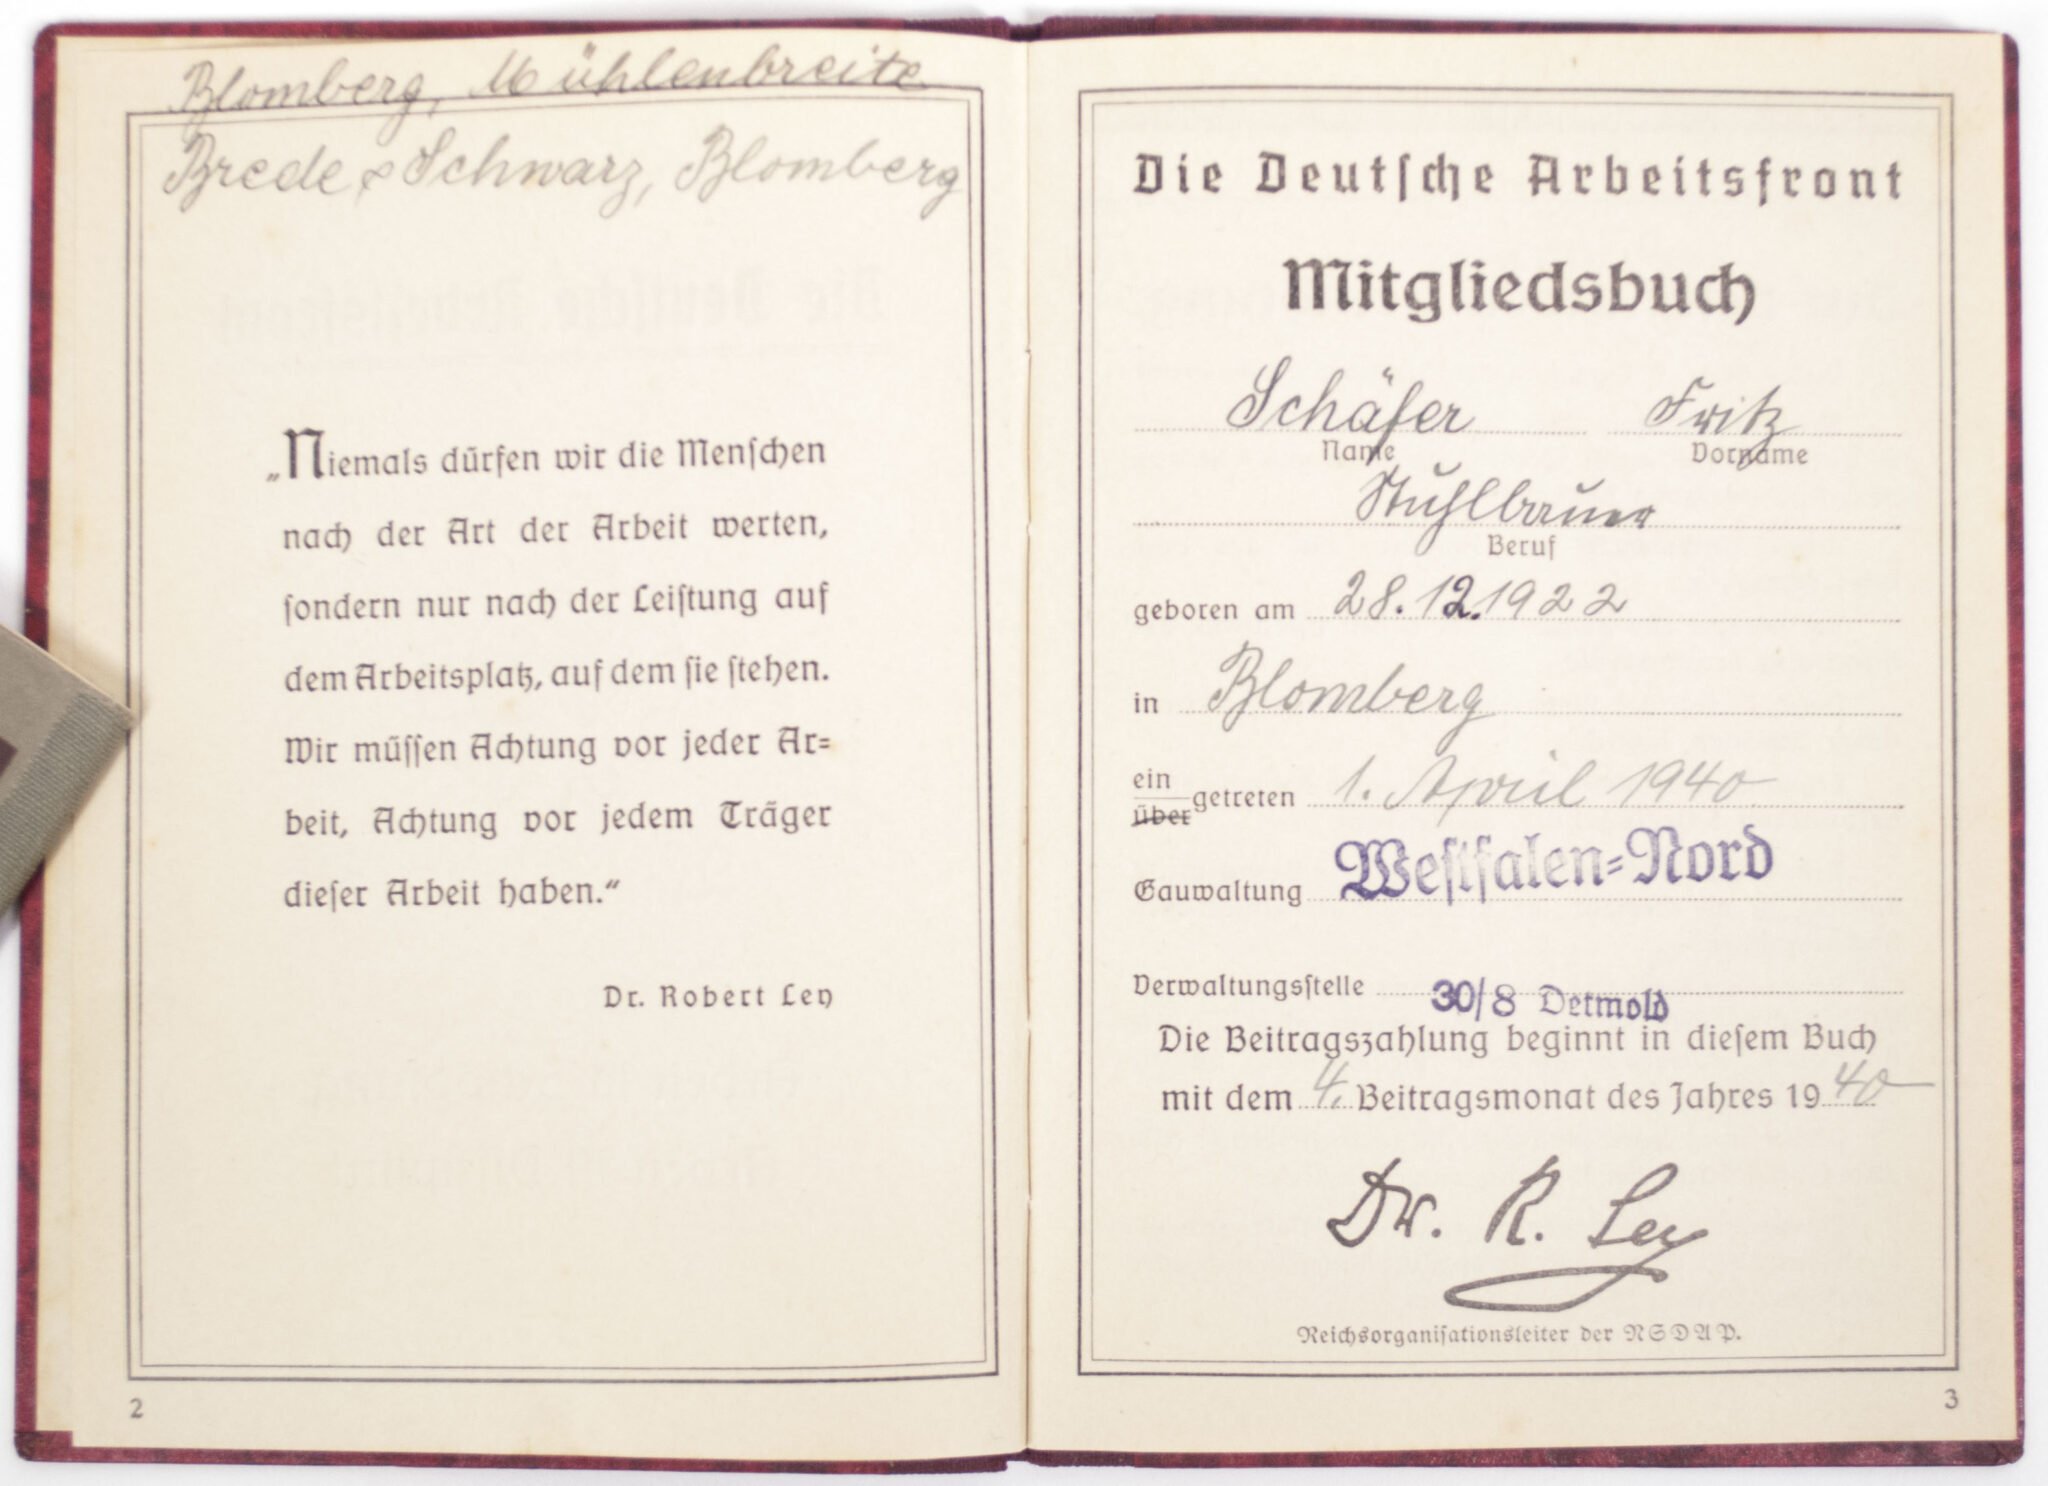 Blomberg, Mühlenbreite
Brede & Schwarz, Blomberg
„Niemals dürfen wir die Menſchen
nach der Art der Arbeit werten,
ſondern nur nach der Leiſtung auf
dem Arbeitsplatz, auf dem ſie ſtehen.
Wir müſſen Achtung vor jeder Ar=
beit, Achtung vor jedem Träger
dieſer Arbeit haben.“
Dr. Robert Ley
2
Die Deutſche Arbeitsfront
Mitgliedsbuch
Schäfer Fritz
Name Vorname
Stuhlbauer
Beruf
geboren am 28.12.1922
in Blomberg
ein
über getreten 1. April 1940
Gauwaltung Weſtfalen=Nord
Verwaltungsſtelle 30/8 Detmold
Die Beitragszahlung beginnt in dieſem Buch
mit dem 4. Beitragsmonat des Jahres 1940
Dr. R. Ley
Reichsorganiſationsleiter der NSDAP.
3